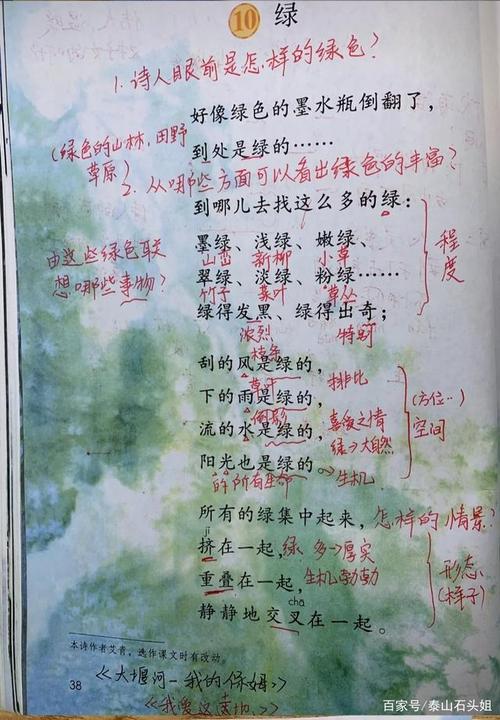 10 绿
1.诗人眼前是怎样的绿色?
好像绿色的墨水瓶倒翻了，
(绿色的山林，田野
草原)
到处是绿的……
2.从哪些方面可以看出绿色的丰富?
到哪儿去找这么多的绿：
墨绿、浅绿、嫩绿、
山峦 新柳 小草
程度
由这些绿色联
想哪些事物?
翠绿、淡绿、粉绿……
竹子 菜叶 草丛
绿得发黑、绿得出奇；
浓烈 特别
刮的风是绿的，
枝条
排比
下的雨是绿的，
草叶
(方位..)
空间
流的水是绿的，
倒影
喜爱之情
绿→大自然
阳光也是绿的。
所有生命
→生机
所有的绿集中起来，
怎样的情景?
jǐ
挤在一起，
绿 多→厚实
重叠在一起，
生机勃勃
形态
(样子)
chā
静静地交叉在一起。
本诗作者艾青，选作课文时有改动。
38
《大堰河一我的保姆》
《我爱这土地》
百家号/泰山石头姐